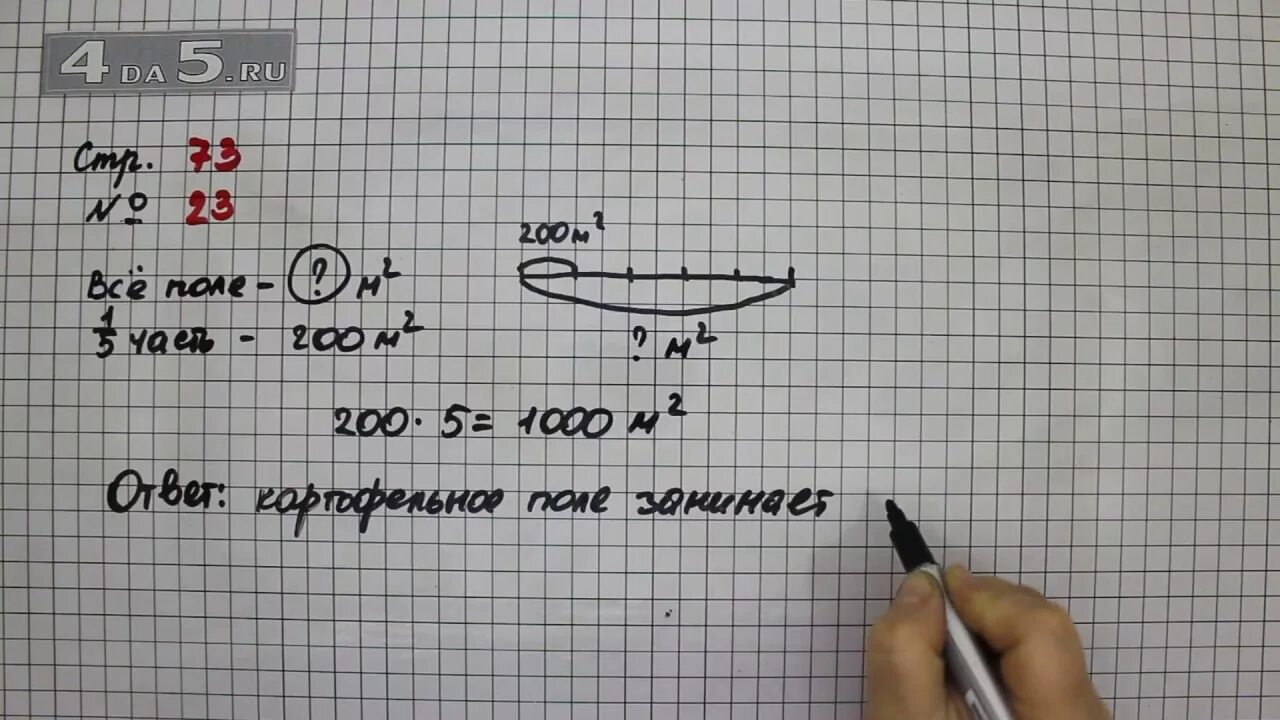 4DA5.RU
Стр. 73
№ 23
200 м²
Всё поле - ? м²
1/5 часть - 200 м²
? м²
200 · 5 = 1000 м²
Ответ: картофельное поле занимает